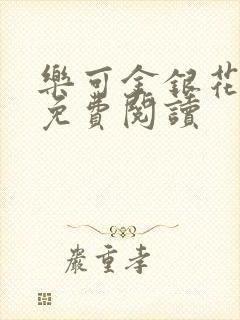 樂可金銀花
免費閱讀
嚴重孝